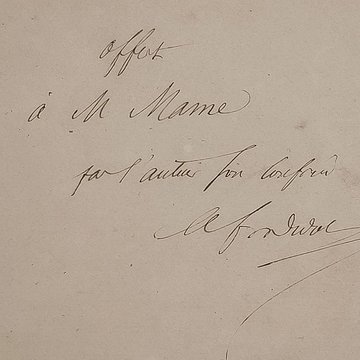 offert
à M Mame
par l'auteur son confrère
A f Didot